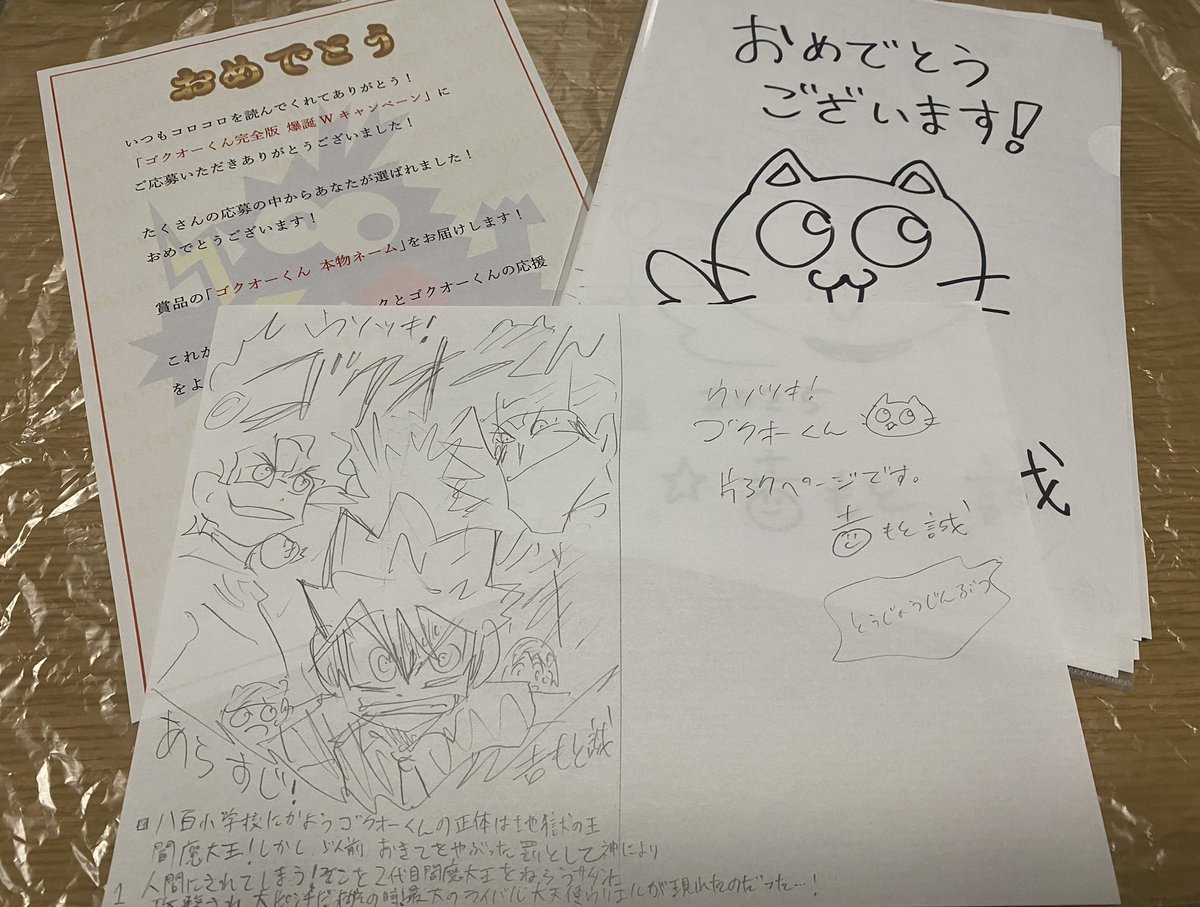 おめでとう
いつもコロコロを読んでくれてありがとう！
「ゴクオーくん完全版 爆誕Wキャンペーン」に
ご応募いただきありがとうございました！
たくさんの応募の中からあなたが選ばれました！
おめでとうございます！
賞品の「ゴクオーくん 本物ネーム」をお届けします！
クとゴクオーくんの応援
これか
をよ
おめでとう
ございます！
ウソツキ！
ゴクオーくん
あらすじ！
吉もと誠
八百小学校にかようゴクオーくんの正体は地獄の王
閻魔大王！しかし以前おきてをやぶった罰として神により
人間にされてしまう！そこを2代目閻魔大王をねらうサタンに
大ピンチだ
最大のライバル大天使
が現れたのだった…！
1
ウソツキ！
ゴクオーくん
片37ページです。
吉もと誠
とうじょうじんぶつ